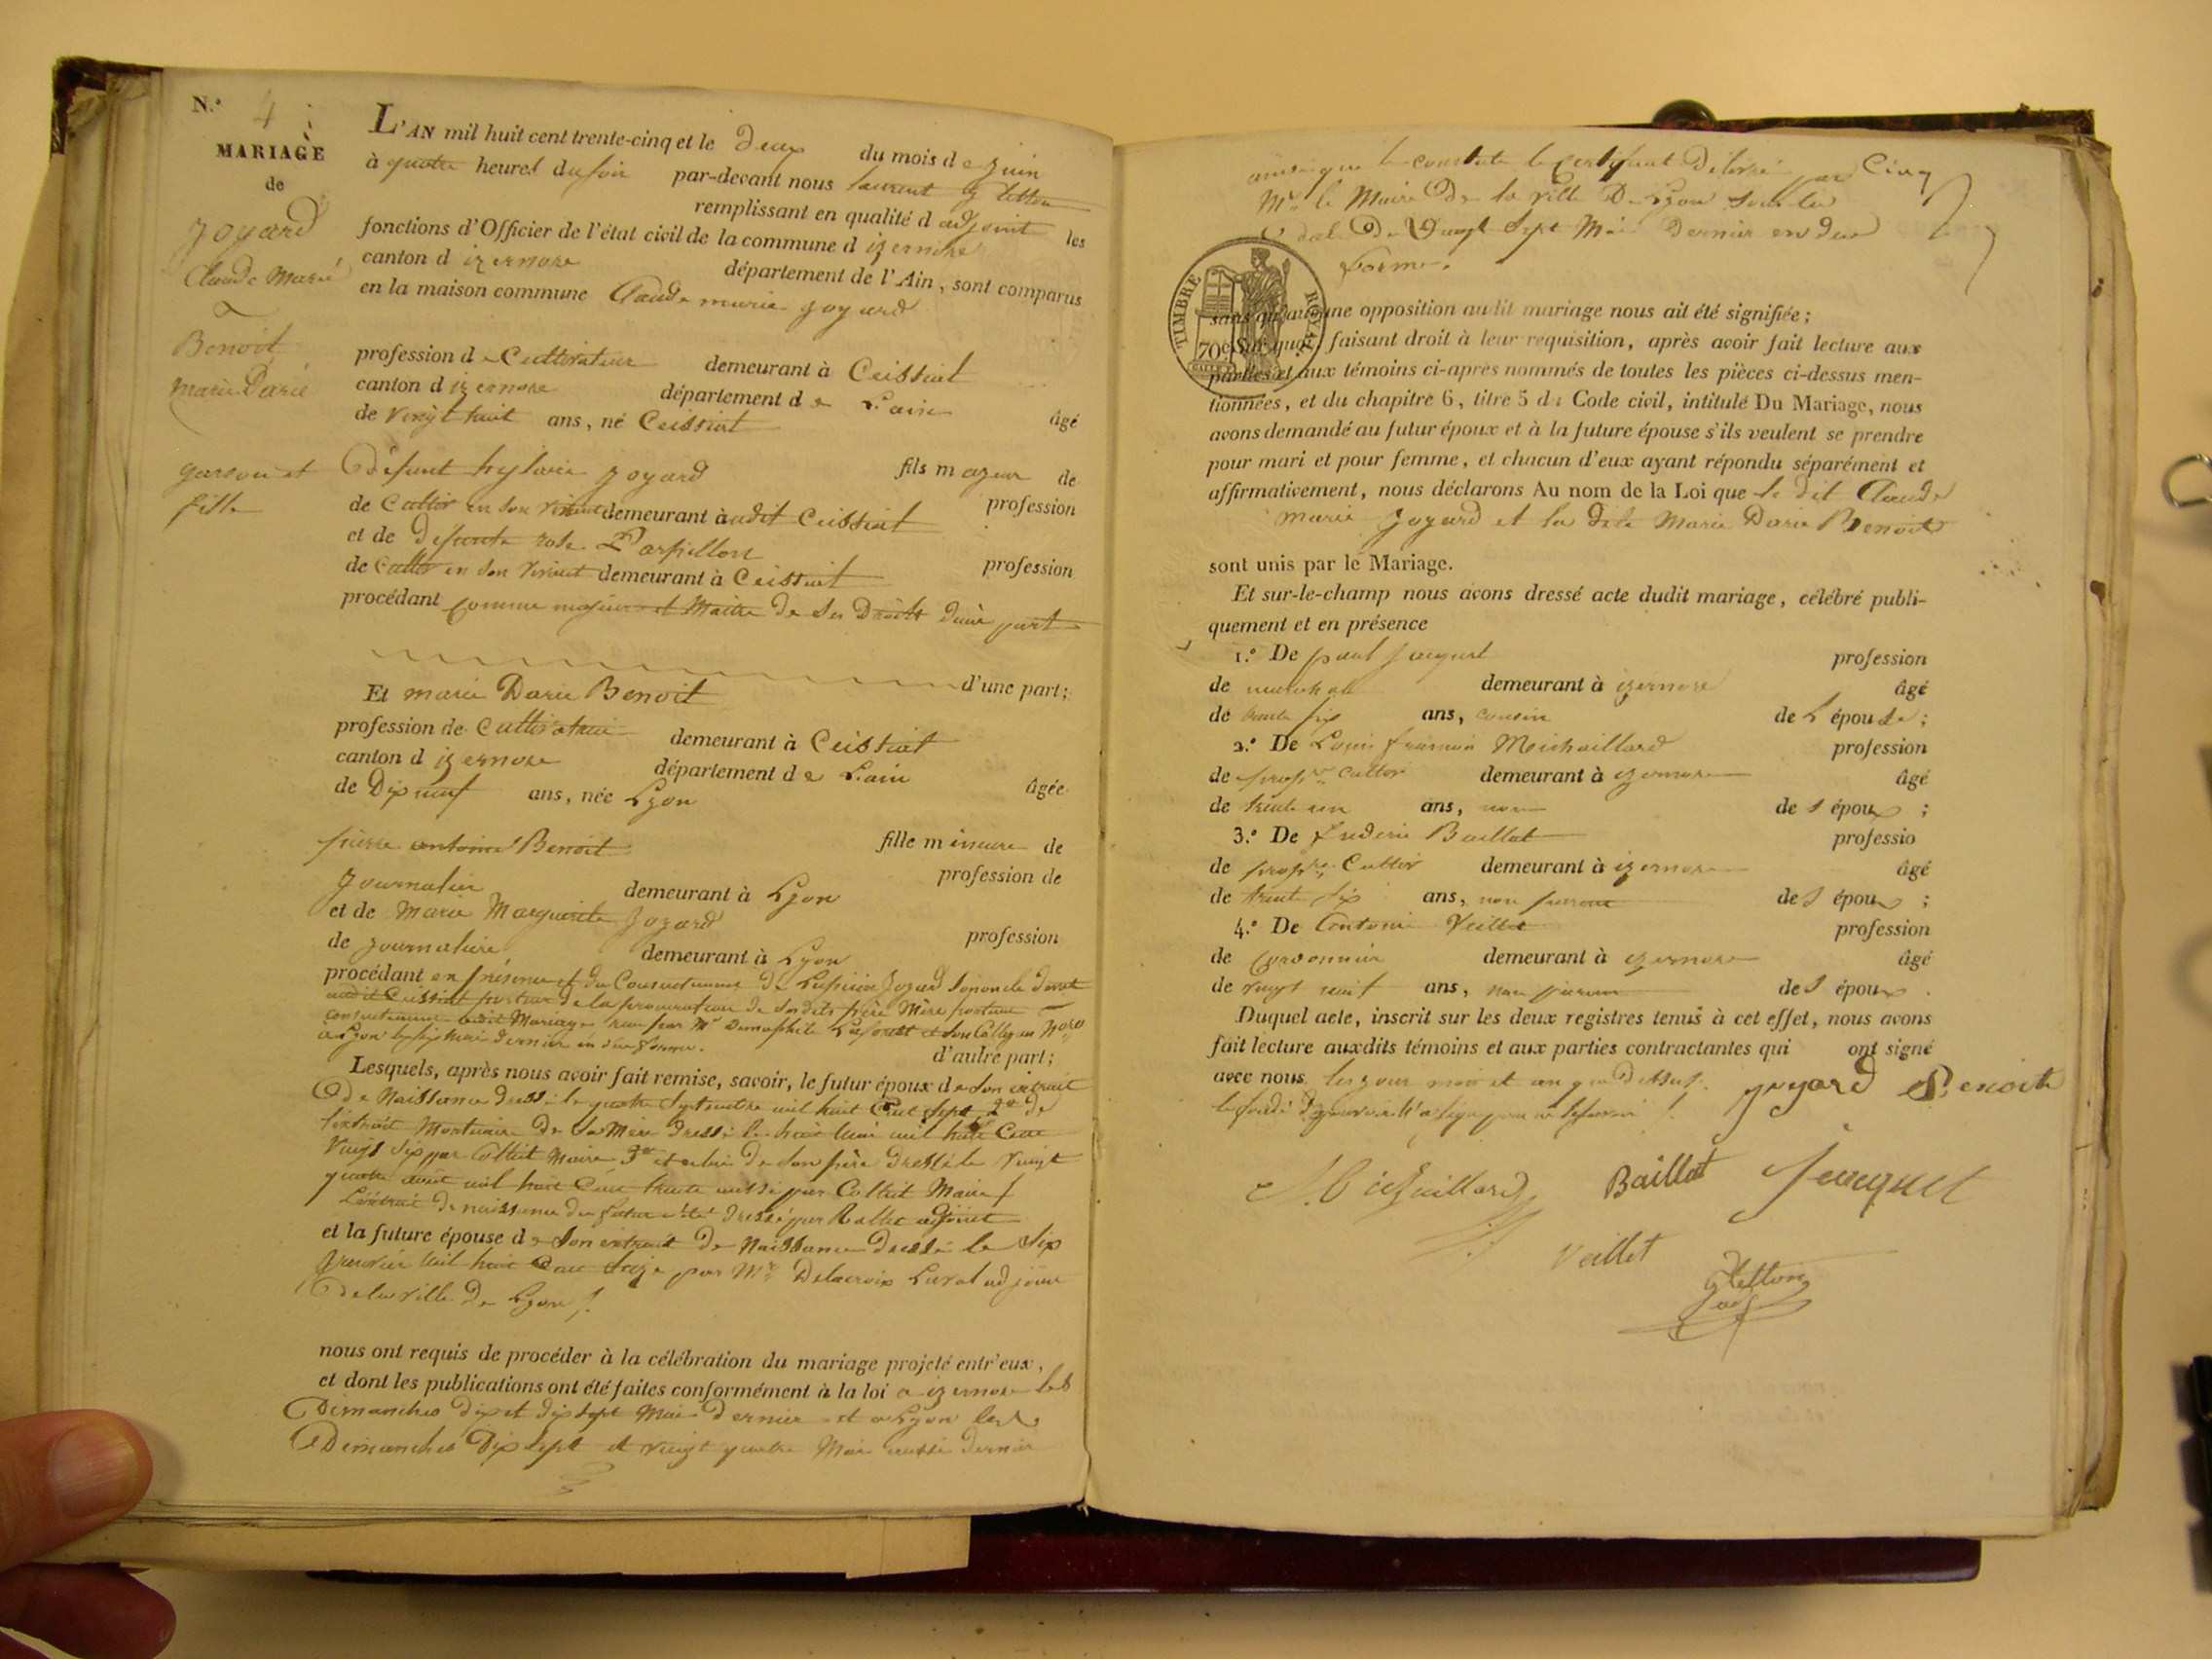 N.º 4
MARIAGE
de
Joyard
Claude Marie
Benoit
marie Darie
garçon et
fille
L'AN mil huit cent trente-cinq et le deux du mois de juin
à quatre heures du soir par-devant nous laurent
remplissant en qualité d adjoint les
fonctions d'Officier de l'état civil de la commune d izernore
canton d izernore département de l'Ain, sont comparus
en la maison commune Claude marie Joyard
profession de Cultivateur demeurant à Ceissiat
canton d izernore département de L'ain âgé
de vingt huit ans, né Ceissiat
fils majeur de
Défunt hylaire Joyard profession
de Cultivr en son vivant demeurant à udit Ceissiat
et de Defunte rose Parpillon profession
de Cultivr en son vivant demeurant à Ceissiat
procédant Comme majeur et Maitre de ses Droits d'une part
d'une part;
Et marie Darie Benoit
profession de Cultivatrice demeurant à Ceissiat
canton d izernore département de L'ain âgée
de Dix neuf ans, née Lyon
fille mineure de
pierre antoine Benoit profession de
Journalier demeurant à Lyon
et de Marie Marguerite Joyard profession
de Journalière demeurant à Lyon
procédant en présence et du Consentement de Joyard son oncle
audit Ceissiat porteur de la procuration de Sesdits père Mère portant
consentement audit Mariage par Mr et son Collegue
à Lyon le six mai dernier en due forme.
d'autre part;
Lesquels, après nous avoir fait remise, savoir, le futur époux de son extrait
De Naissance dressé le quatre Septembre mil huit Cent Sept 2º de
l'extrait Mortuaire De Sa Mere dressé le huit Mai mil huit Cent
Vingt Six par Colletet Maire 3º et celui De Son père Dressé le Vingt
quatre aout mil huit Cent trente aussi par Colletet Maire
L'extrait De naissance du futur a été dressé par Rollet adjoint
et la future épouse de Son extrait De Naissance dressé le Six
Janvier mil huit Cent Seize par Mr Delacroix Laval adjoint
De la ville De Lyon
nous ont requis de procéder à la célébration du mariage projeté entr'eux,
et dont les publications ont été faites conformément à la loi a izernore les
Dimanches dix et dix sept Mai Dernier et a Lyon les
Dimanches Dix Sept et vingt quatre Mai aussi dernier
ainsi que le constate le Certificat Délivré par Cinq
Mr le Maire De la ville De Lyon Sous la
date De Vingt Sept Mai Dernier en due
forme.
TIMBRE ROYAL
70c
sans qu'aucune opposition audit mariage nous ait été signifiée;
Sur quoi, faisant droit à leur requisition, après avoir fait lecture aux
parties et aux témoins ci-après nommés de toutes les pièces ci-dessus men-
tionnées, et du chapitre 6, titre 5 du Code civil, intitulé Du Mariage, nous
avons demandé au futur époux et à la future épouse s'ils veulent se prendre
pour mari et pour femme, et chacun d'eux ayant répondu séparément et
affirmativement, nous déclarons Au nom de la Loi que le dit Claude
Marie Joyard et la dite Marie Darie Benoit
sont unis par le Mariage.
Et sur-le-champ nous avons dressé acte dudit mariage, célébré publi-
quement et en présence
1.º De paul Jacquet profession
de demeurant à izernore âgé
de trente six ans, cousin de L épouse;
2.º De Louis françois Michaillard profession
de propre Cultivr demeurant à izernore âgé
de trente un ans, non des époux;
3.º De Baillat professio
de propre Cultivr demeurant à izernore âgé
de trente six ans, non parent des époux;
4.º De Antoine Veillet profession
de Cordonnier demeurant à izernore âgé
de vingt neuf ans, non parent des époux.
Duquel acte, inscrit sur les deux registres tenus à cet effet, nous avons
fait lecture auxdits témoins et aux parties contractantes qui ont signé
avec nous les jour mois et an que Dessus. Joyard Benoite
Michaillard Baillat Jacquet
Veillet